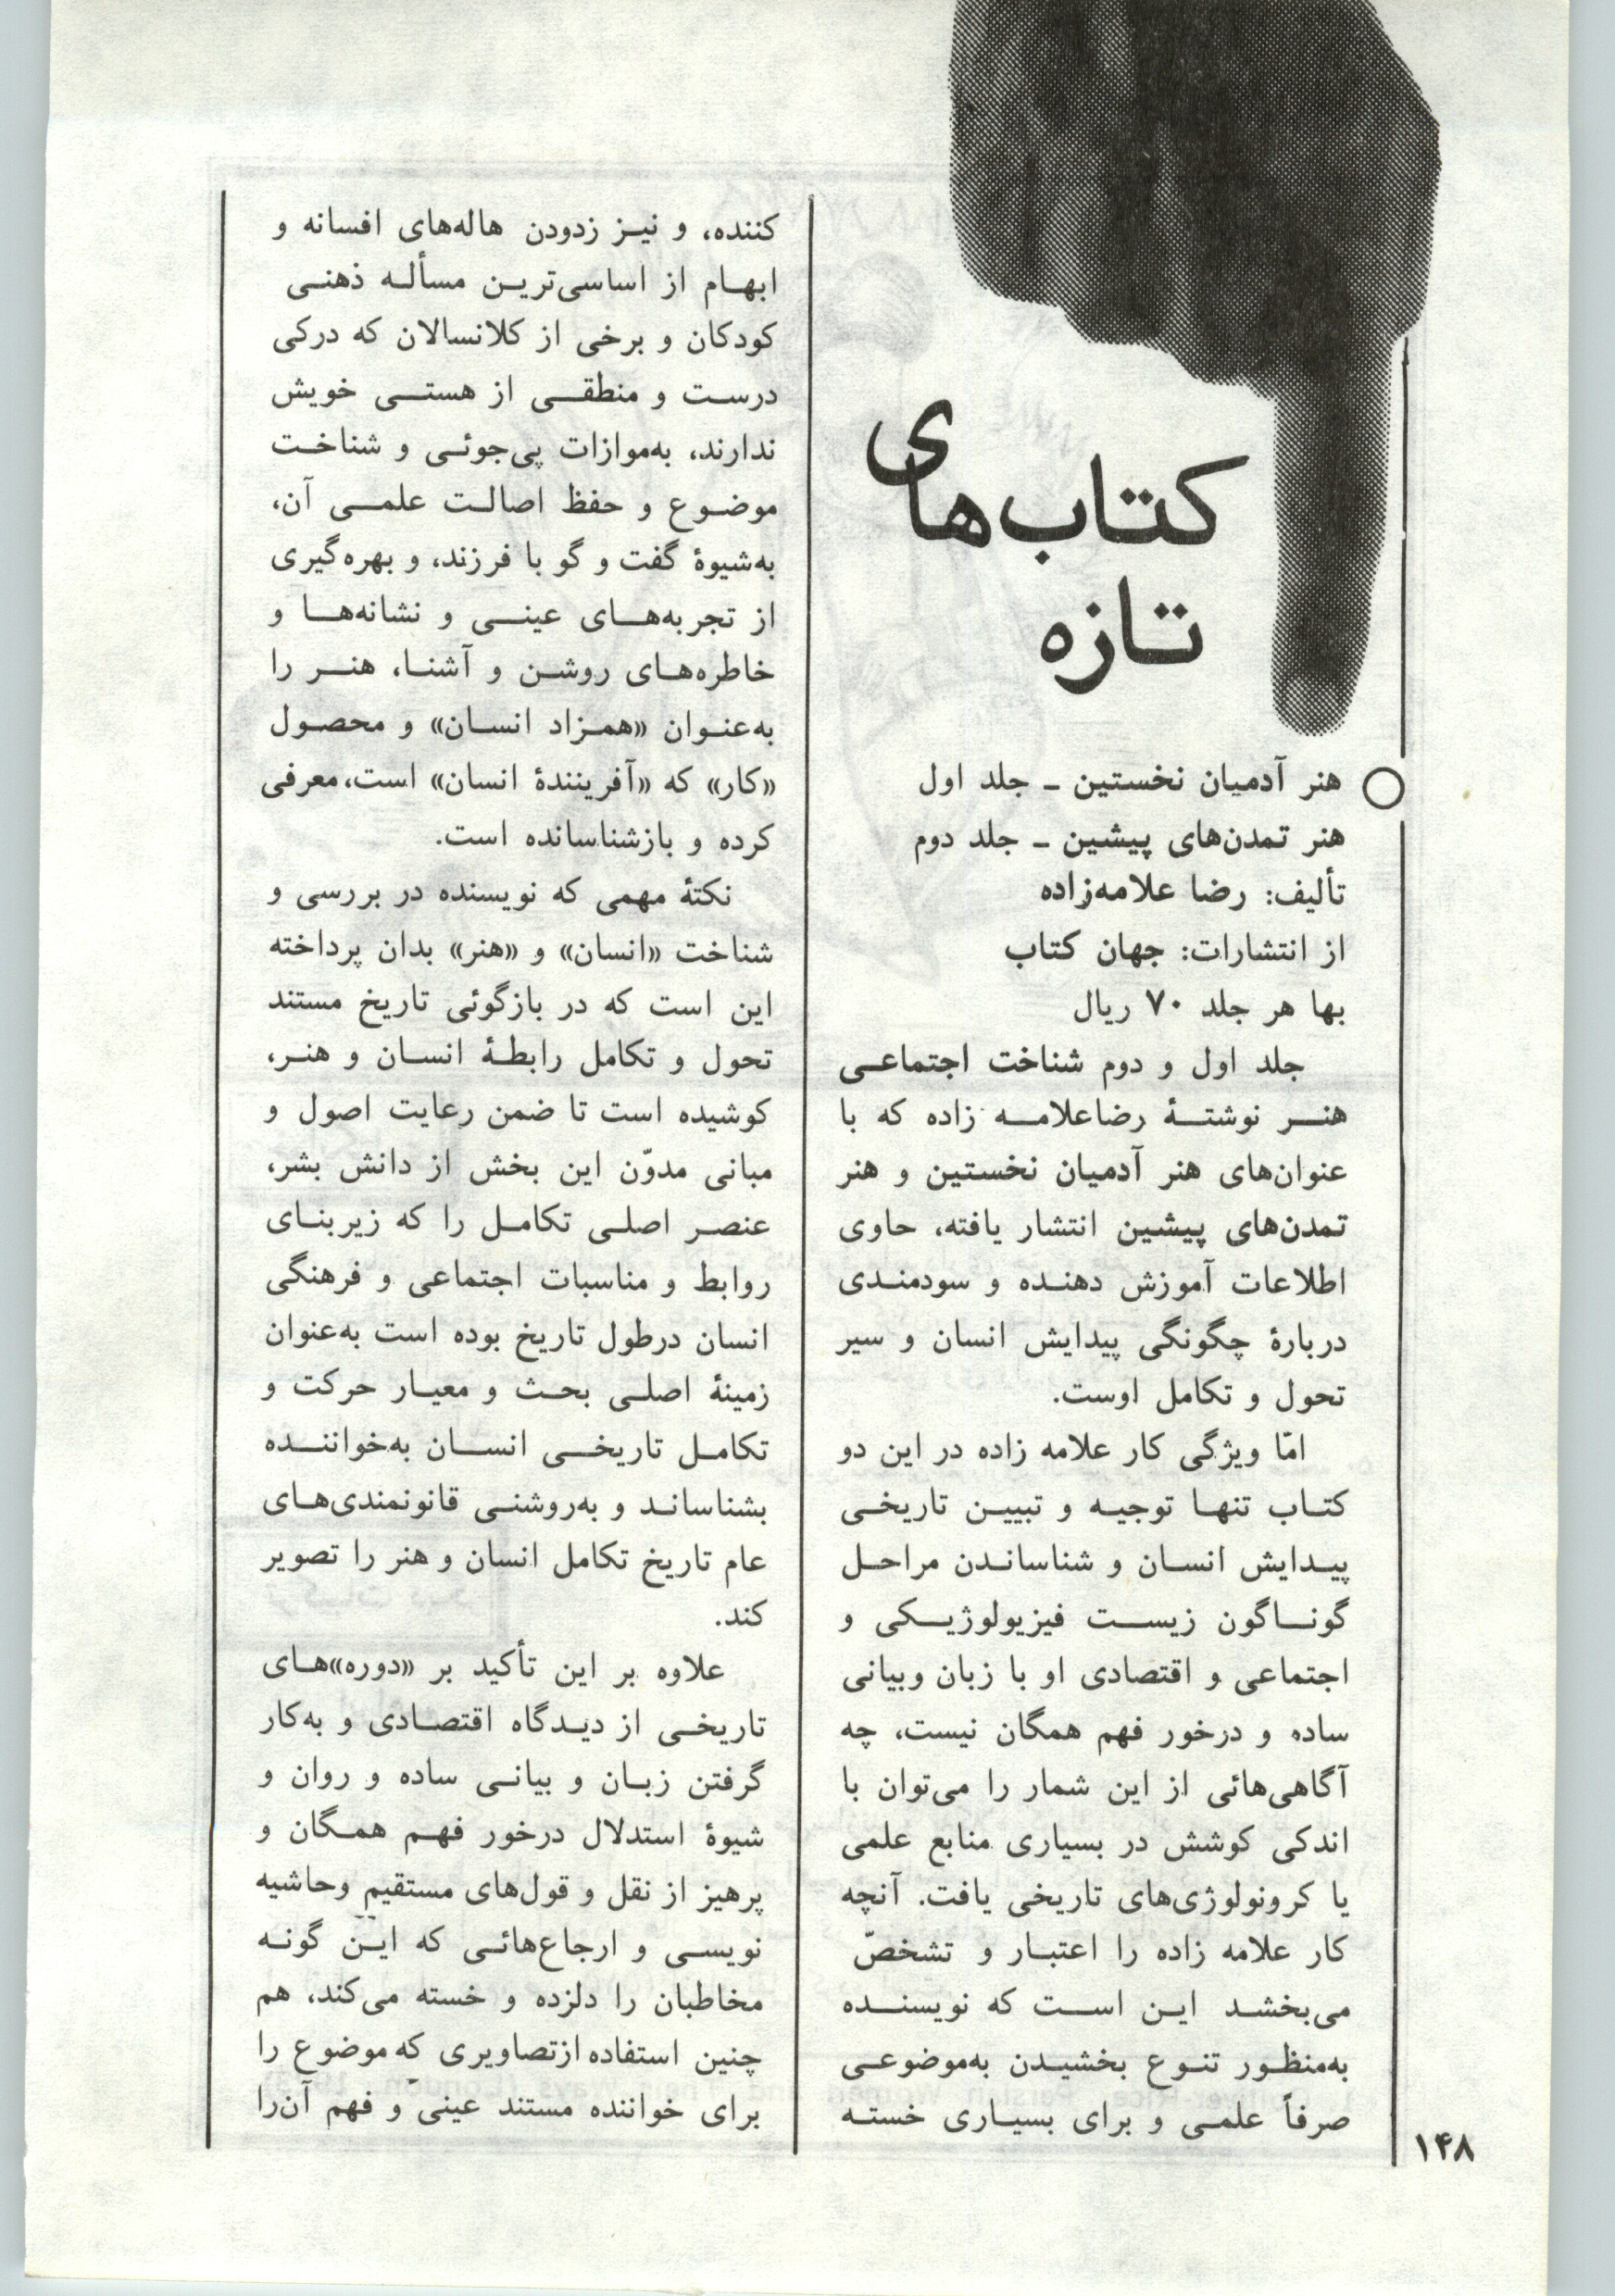 کتاب‌های
تازه
هنر آدمیان نخستین ـ جلد اول
هنر تمدن‌های پیشین ـ جلد دوم
تألیف: رضا علامه‌زاده
از انتشارات: جهان کتاب
بها هر جلد ۷۰ ریال
جلد اول و دوم شناخت اجتماعی
هنر نوشتهٔ رضاعلامه زاده که با
عنوان‌های هنر آدمیان نخستین و هنر
تمدن‌های پیشین انتشار یافته، حاوی
اطلاعات آموزش دهنده و سودمندی
دربارهٔ چگونگی پیدایش انسان و سیر
تحول و تکامل اوست.
امّا ویژگی کار علامه زاده در این دو
کتاب تنها توجیه و تبیین تاریخی
پیدایش انسان و شناساندن مراحل
گوناگون زیست فیزیولوژیکی و
اجتماعی و اقتصادی او با زبان وبیانی
ساده و درخور فهم همگان نیست، چه
آگاهی‌هائی از این شمار را می‌توان با
اندکی کوشش در بسیاری منابع علمی
یا کرونولوژی‌های تاریخی یافت. آنچه
کار علامه زاده را اعتبار و تشخصّ
می‌بخشد این است که نویسنده
به‌منظور تنوع بخشیدن به‌موضوعی
صرفاً علمی و برای بسیاری خسته
کننده، و نیز زدودن هاله‌های افسانه و
ابهام از اساسی‌ترین مسأله ذهنی
کودکان و برخی از کلانسالان که درکی
درست و منطقی از هستی خویش
ندارند، به‌موازات پی‌جوئی و شناخت
موضوع و حفظ اصالت علمی آن،
به‌شیوهٔ گفت و گو با فرزند، و بهره‌گیری
از تجربه‌های عینی و نشانه‌ها و
خاطره‌های روشن و آشنا، هنر را
به‌عنوان «همزاد انسان» و محصول
«کار» که «آفرینندهٔ انسان» است،معرفی
کرده و بازشناسانده است.
نکتهٔ مهمی که نویسنده در بررسی و
شناخت «انسان» و «هنر» بدان پرداخته
این است که در بازگوئی تاریخ مستند
تحول و تکامل رابطهٔ انسان و هنر،
کوشیده است تا ضمن رعایت اصول و
مبانی مدوّن این بخش از دانش بشر،
عنصر اصلی تکامل را که زیربنای
روابط و مناسبات اجتماعی و فرهنگی
انسان درطول تاریخ بوده است به‌عنوان
زمینهٔ اصلی بحث و معیار حرکت و
تکامل تاریخی انسان به‌خواننده
بشناساند و به‌روشنی قانونمندی‌های
عام تاریخ تکامل انسان و هنر را تصویر
کند.
علاوه بر این تأکید بر «دوره»های
تاریخی از دیدگاه اقتصادی و به‌کار
گرفتن زبان و بیانی ساده و روان و
شیوهٔ استدلال درخور فهم همگان و
پرهیز از نقل و قول‌های مستقیم وحاشیه
نویسی و ارجاع‌هائی که این گونه
مخاطبان را دلزده و خسته می‌کند، هم
چنین استفاده ازتصاویری که موضوع را
برای خواننده مستند عینی و فهم آن‌را
۱۴۸